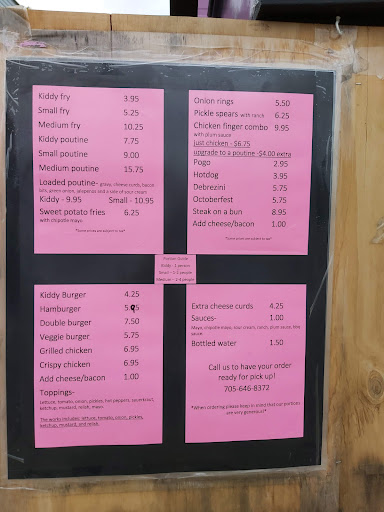 Kiddy fry 3.95
Small fry 5.25
Medium fry 10.25
Kiddy poutine 7.75
Small poutine 9.00
Medium poutine 15.75
Loaded poutine- gravy, cheese curds, bacon
bits, green onion, jalapenos and a side of sour cream
Kiddy - 9.95 Small - 10.95
Sweet potato fries 6.25
with chipotle mayo
*Some prices are subject to tax*
Onion rings 5.50
Pickle spears with ranch 6.25
Chicken finger combo 9.95
with plum sauce
just chicken - $6.75
upgrade to a poutine -$4.00 extra
Pogo 2.95
Hotdog 3.95
Debrezini 5.75
Octoberfest 5.75
Steak on a bun 8.95
Add cheese/bacon 1.00
*Some prices are subject to tax*
Poutine Guide
Kiddy - 1 person
Small - 1-2 people
Medium - 2-4 people
Kiddy Burger 4.25
Hamburger
Double burger 7.50
Veggie burger 5.75
Grilled chicken 6.95
Crispy chicken 6.95
Add cheese/bacon 1.00
Toppings-
Lettuce, tomato, onion, pickles, hot peppers, sauerkraut,
ketchup, mustard, relish, mayo
The works includes lettuce, tomato, onion, pickles,
ketchup, mustard, and relish
Extra cheese curds 4.25
Sauces- 1.00
Mayo, chipotle mayo, sour cream, ranch, plum sauce, hot
sauce
Bottled water 1.50
Call us to have your order
ready for pick up!
705-646-8372
*When ordering please keep in mind that our portions
are very generous!*